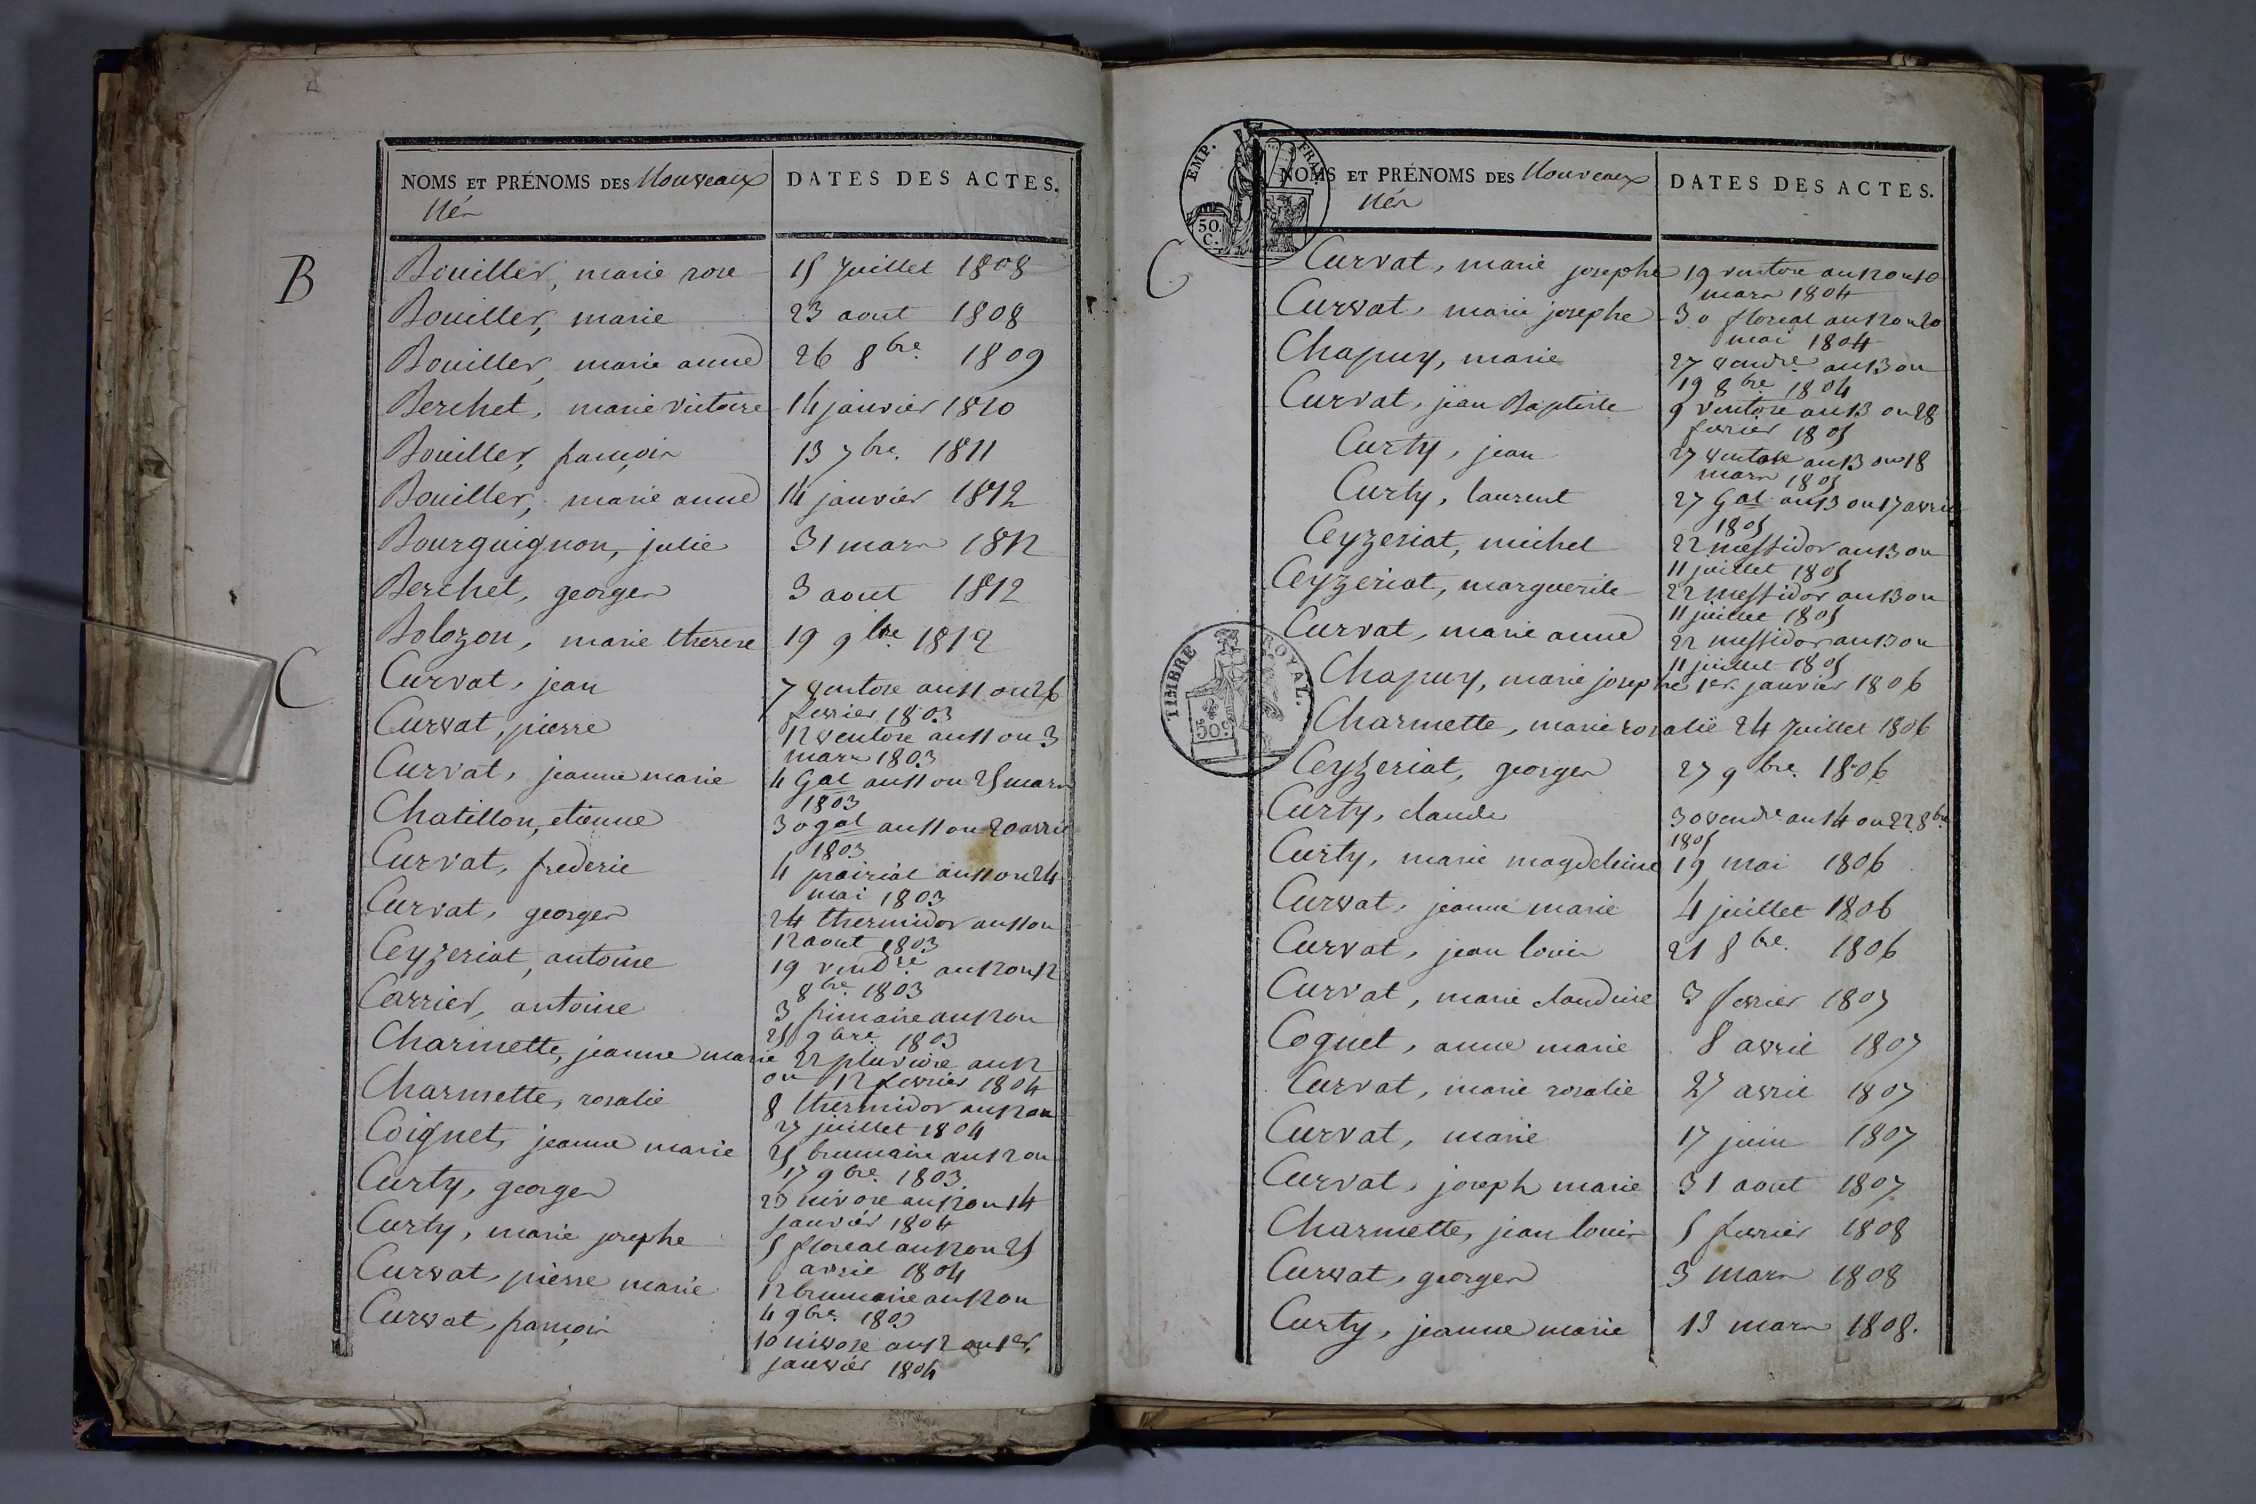 NOMS ET PRÉNOMS DES Nouveaux DATES DES ACTES.
Nés
B
Bouiller, marie rose 15 Juillet 1808
Bouiller, marie 23 aout 1808
Bouiller, marie anne 26 8bre 1809
Berchet, marie victoire 14 janvier 1810
Bouiller, françois 13 7bre. 1811
Bouiller, marie anne 14 janvier 1812
Bourguignon, julie 31 mars 1812
Berchet, georges 3 aout 1812
Bolozon, marie therese 19 9bre 1812
C
Curvat, jean 7 ventose an 11 ou 26
fevrier 1803
Curvat, pierre 12 ventose an 11 ou 3
mars 1803
Curvat, jeanne marie 4 Gal an 11 ou 25 mars
1803
Chatillon, etienne 30 gal an 11 ou 20 avril
1803
Curvat, frederic 4 prairial an 11 ou 24
mai 1803
Curvat, georges 24 thermidor an 11 ou
12 aout 1803
Ceyzeriat, antoine 19 vendre an 12 ou 12
8bre 1803
Carrier, antoine 3 frimaire an 12 ou
25 9bre 1803
Charmette, jeanne marie 22 pluviose an 12
ou 12 fevrier 1804
Charmette, rosalie 8 thermidor an 12 ou
27 juillet 1804
Coignet, jeanne marie 25 brumaire an 12 ou
17 9bre 1803
Curty, georges 23 nivose an 12 ou 14
janvier 1804
Curty, marie josephe 5 floreal an 12 ou 25
avril 1804
Curvat, pierre marie 12 brumaire an 12 ou
4 9bre 1803
Curvat, françois 10 nivose an 12 ou 1er
janvier 1804
EMP. FRAN.
50.
C.
NOMS ET PRÉNOMS DES Nouveaux DATES DES ACTES.
Nés
C
Curvat, marie josephe 19 ventose an 12 ou 10
mars 1804
Curvat, marie josephe 30 floreal an 12 ou 20
mai 1804
Chapuy, marie 27 vendre an 13 ou
19 8bre 1804
Curvat, jean Baptiste 9 ventose an 13 ou 28
fevrier 1805
Curty, jean 27 ventose an 13 ou 18
mars 1805
Curty, laurent 27 Gal an 13 ou 17 avril
1805
Ceyzeriat, michel 22 messidor an 13 ou
11 juillet 1805
Ceyzeriat, marguerite 22 messidor an 13 ou
11 juillet 1805
Curvat, marie anne 22 messidor an 13 ou
11 juillet 1805
TIMBRE ROYAL.
50c
Chapuy, marie josephe 1er. janvier 1806
Charmette, marie rosalie 24 Juillet 1806
Ceyzeriat, georges 27 9bre. 1806
Curty, claude 30 vendre an 14 ou 22 8bre
1805
Curty, marie magdeleine 19 mai 1806
Curvat, jeanne marie 4 juillet 1806
Curvat, jean louis 21 8bre. 1806
Curvat, marie claudine 3 fevrier 1807
Coquet, anne marie 8 avril 1807
Curvat, marie rosalie 27 avril 1807
Curvat, marie 17 juin 1807
Curvat, joseph marie 31 aout 1807
Charmette, jean louis 5 fevrier 1808
Curvat, georges 3 mars 1808
Curty, jeanne marie 13 mars 1808.